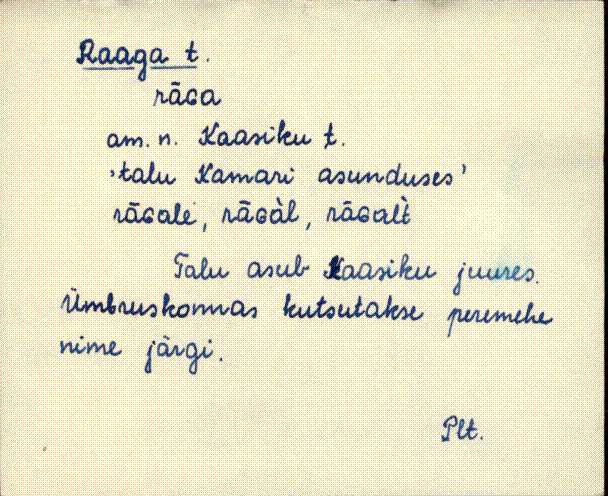 Raaga t.
rāɢa
am. n. Kaasiku t.
›talu Kamari asunduses’
rāɢalè, rāɢàl, rāɢalt̀
Talu asub Kaasiku juures.
Ümbruskonnas kutsutakse peremehe
nime järgi.
Plt.